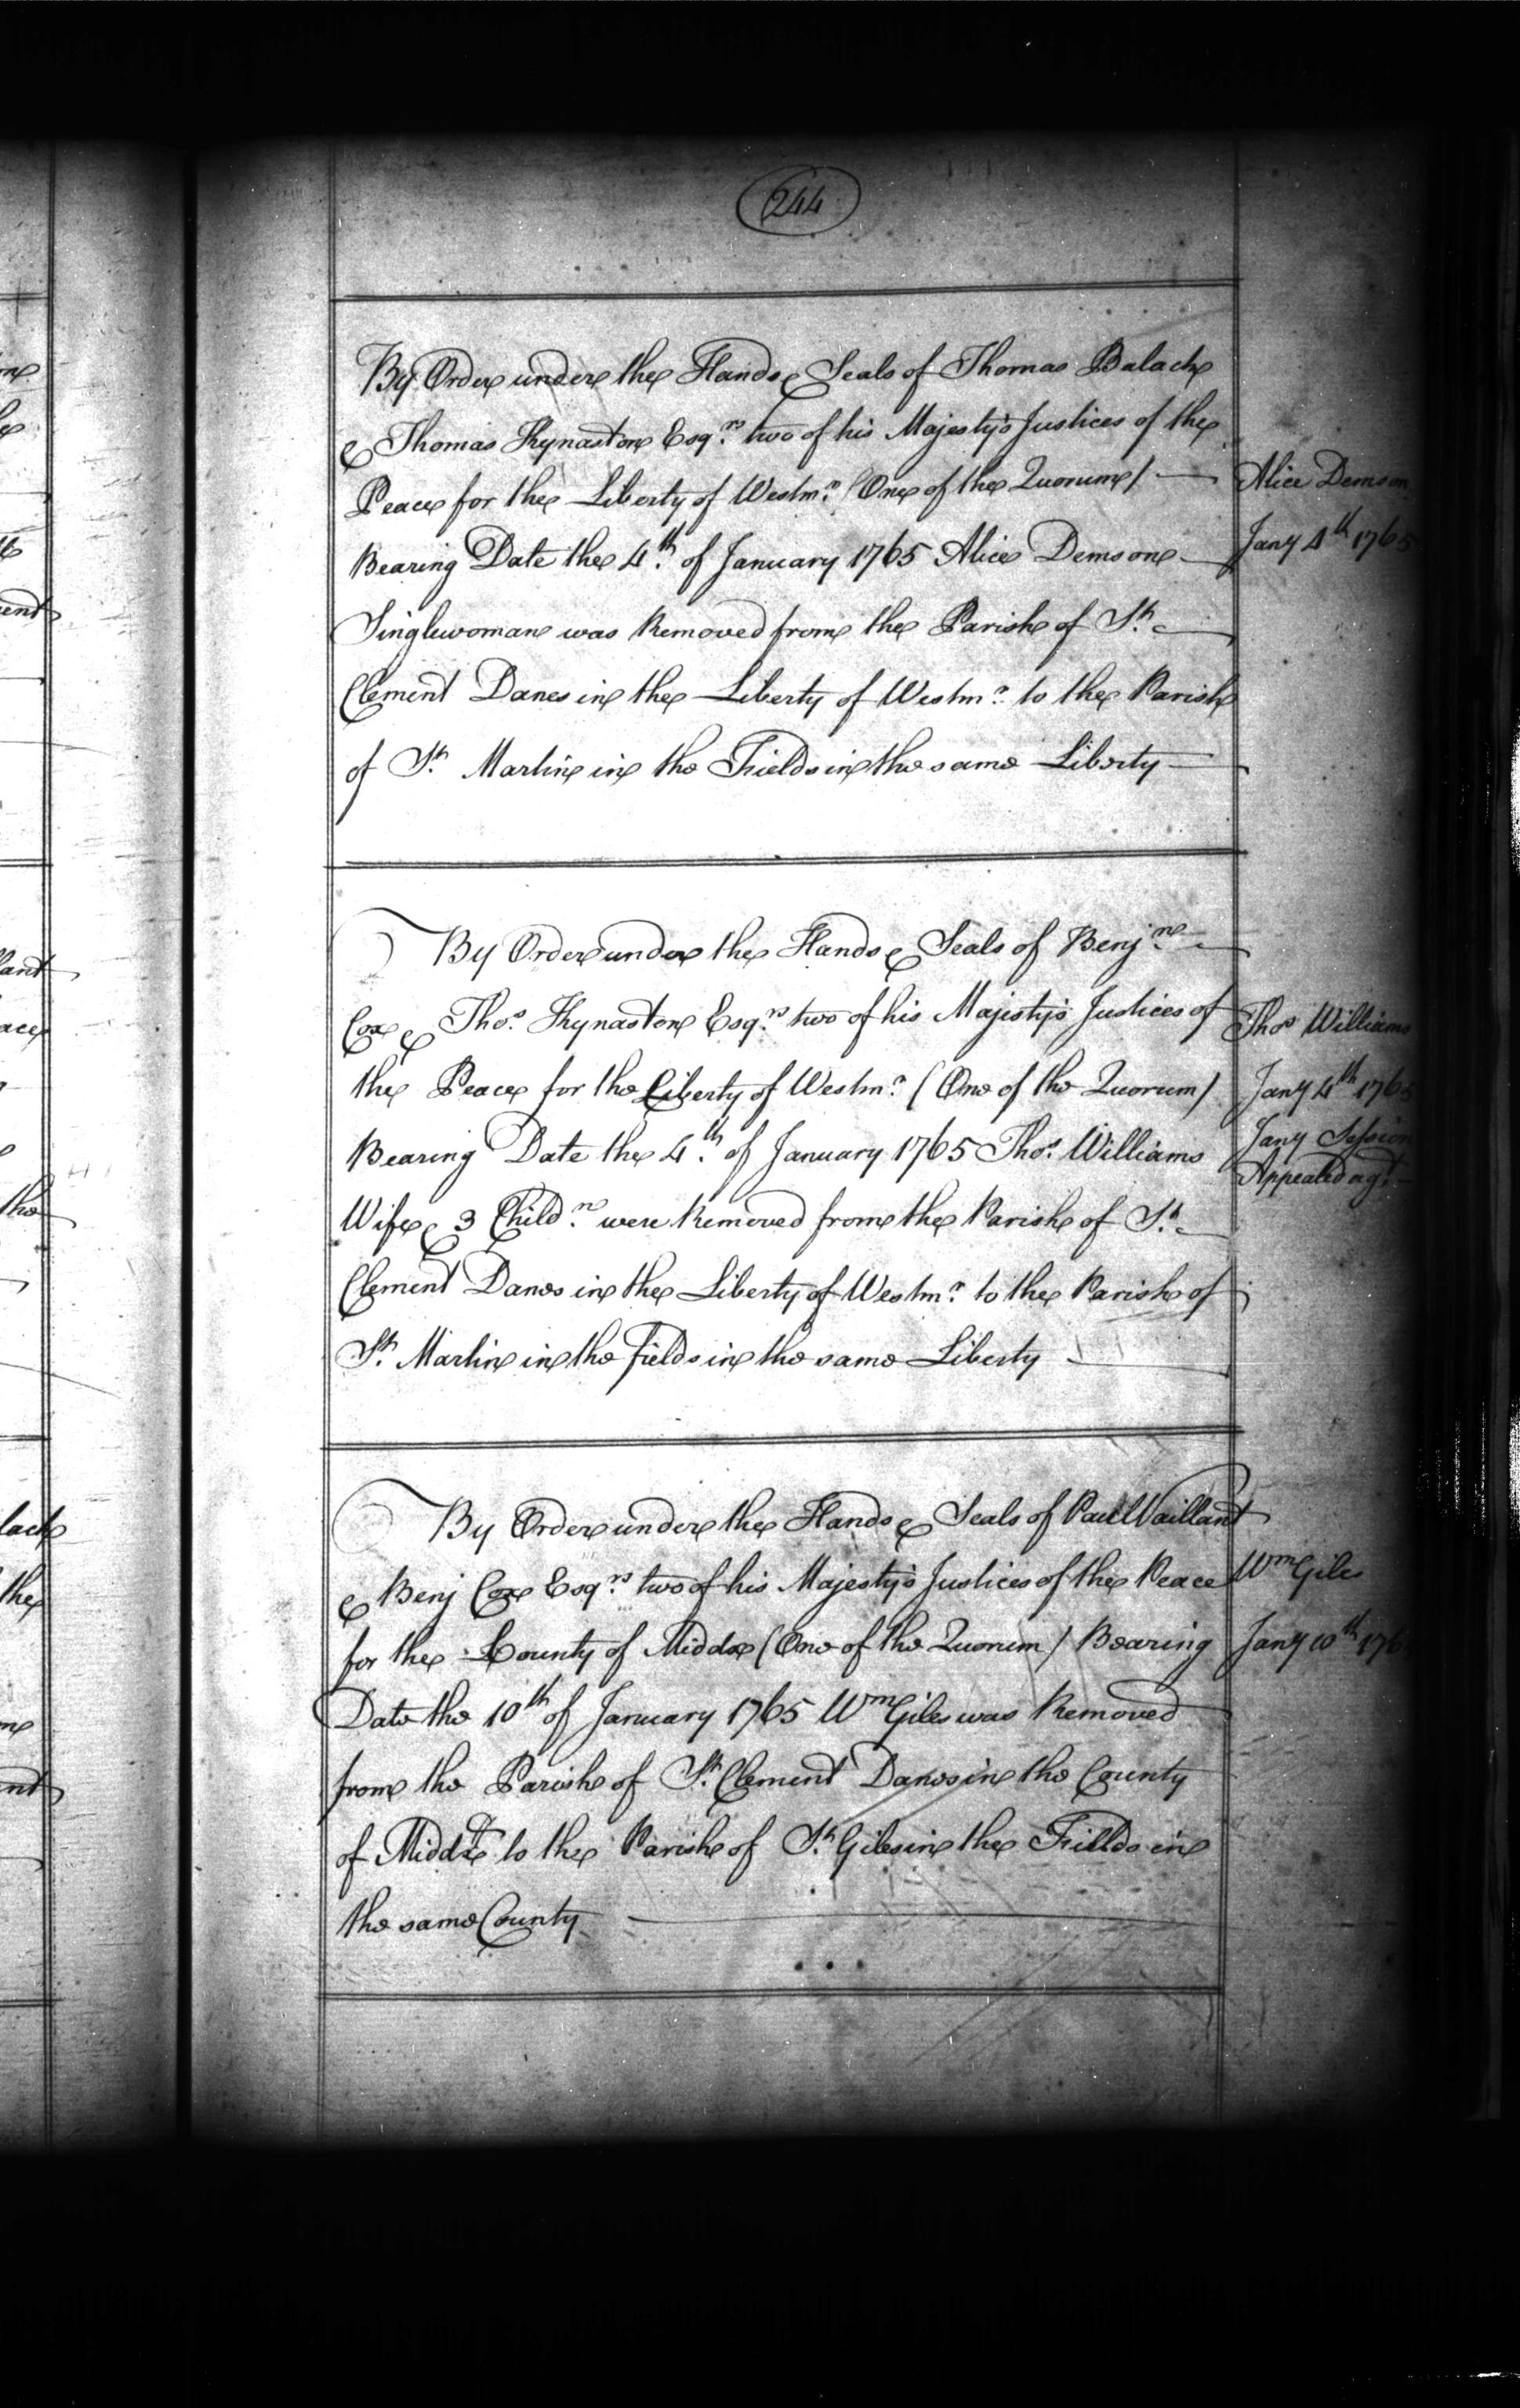 244
By Order under the Hands & Seals of Thomas Balack
& Thomas Kynaston Esqrs. two of his Majesty's Justices of the
Peace for the Liberty of Westmr. (One of the Quorum)
Bearing Date the 4th. of January 1765 Alice Demson
Singlewoman was Removed from the Parish of St.
Clement Danes in the Liberty of Westmr. to the Parish
of St. Martin in the Fields in the same Liberty
Alice Demson
Jany 4th 1765
By Order under the Hands & Seals of Benjn.
Cox & Thos. Kynaston Esqrs. two of his Majesty's Justices of
the Peace for the Liberty of Westmr. (One of the Quorum)
Bearing Date the 4th. of January 1765 Thos. Williams
Wife & 3 Childn. were Removed from the Parish of St.
Clement Danes in the Liberty of Westmr. to the Parish of
St. Martin in the fields in the same Liberty
Thos Williams
Jany 4th 1765
Jany Session
Appealed agt.
By Order under the Hands & Seals of Paul Vaillant
& Benj Cox Esqrs. two of his Majesty's Justices of the Peace
for the County of Middx (One of the Quorum) Bearing
Date the 10th of January 1765 Wm Giles was Removed
from the Parish of St. Clement Danes in the County
of Middx to the Parish of St. Giles in the Fields in
the same County
Wm Giles
Jany 10th 176